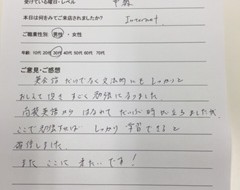 受けている曜日・レベル 中級
本日は何をみてご来店されましたか? Internet
ご職業性別 男性・女性
年齢 10代 20代 30代 40代 50代 60代 70代
ご意見・ご感想
英会話だけでなく文法的にもしっかりと
おしえて頂きすごく勉強になりました
高校英語からはなれてだいぶ時がたちましたが
ここで勉強すればしっかり学習できると
確信しました
また ここに きたいです!